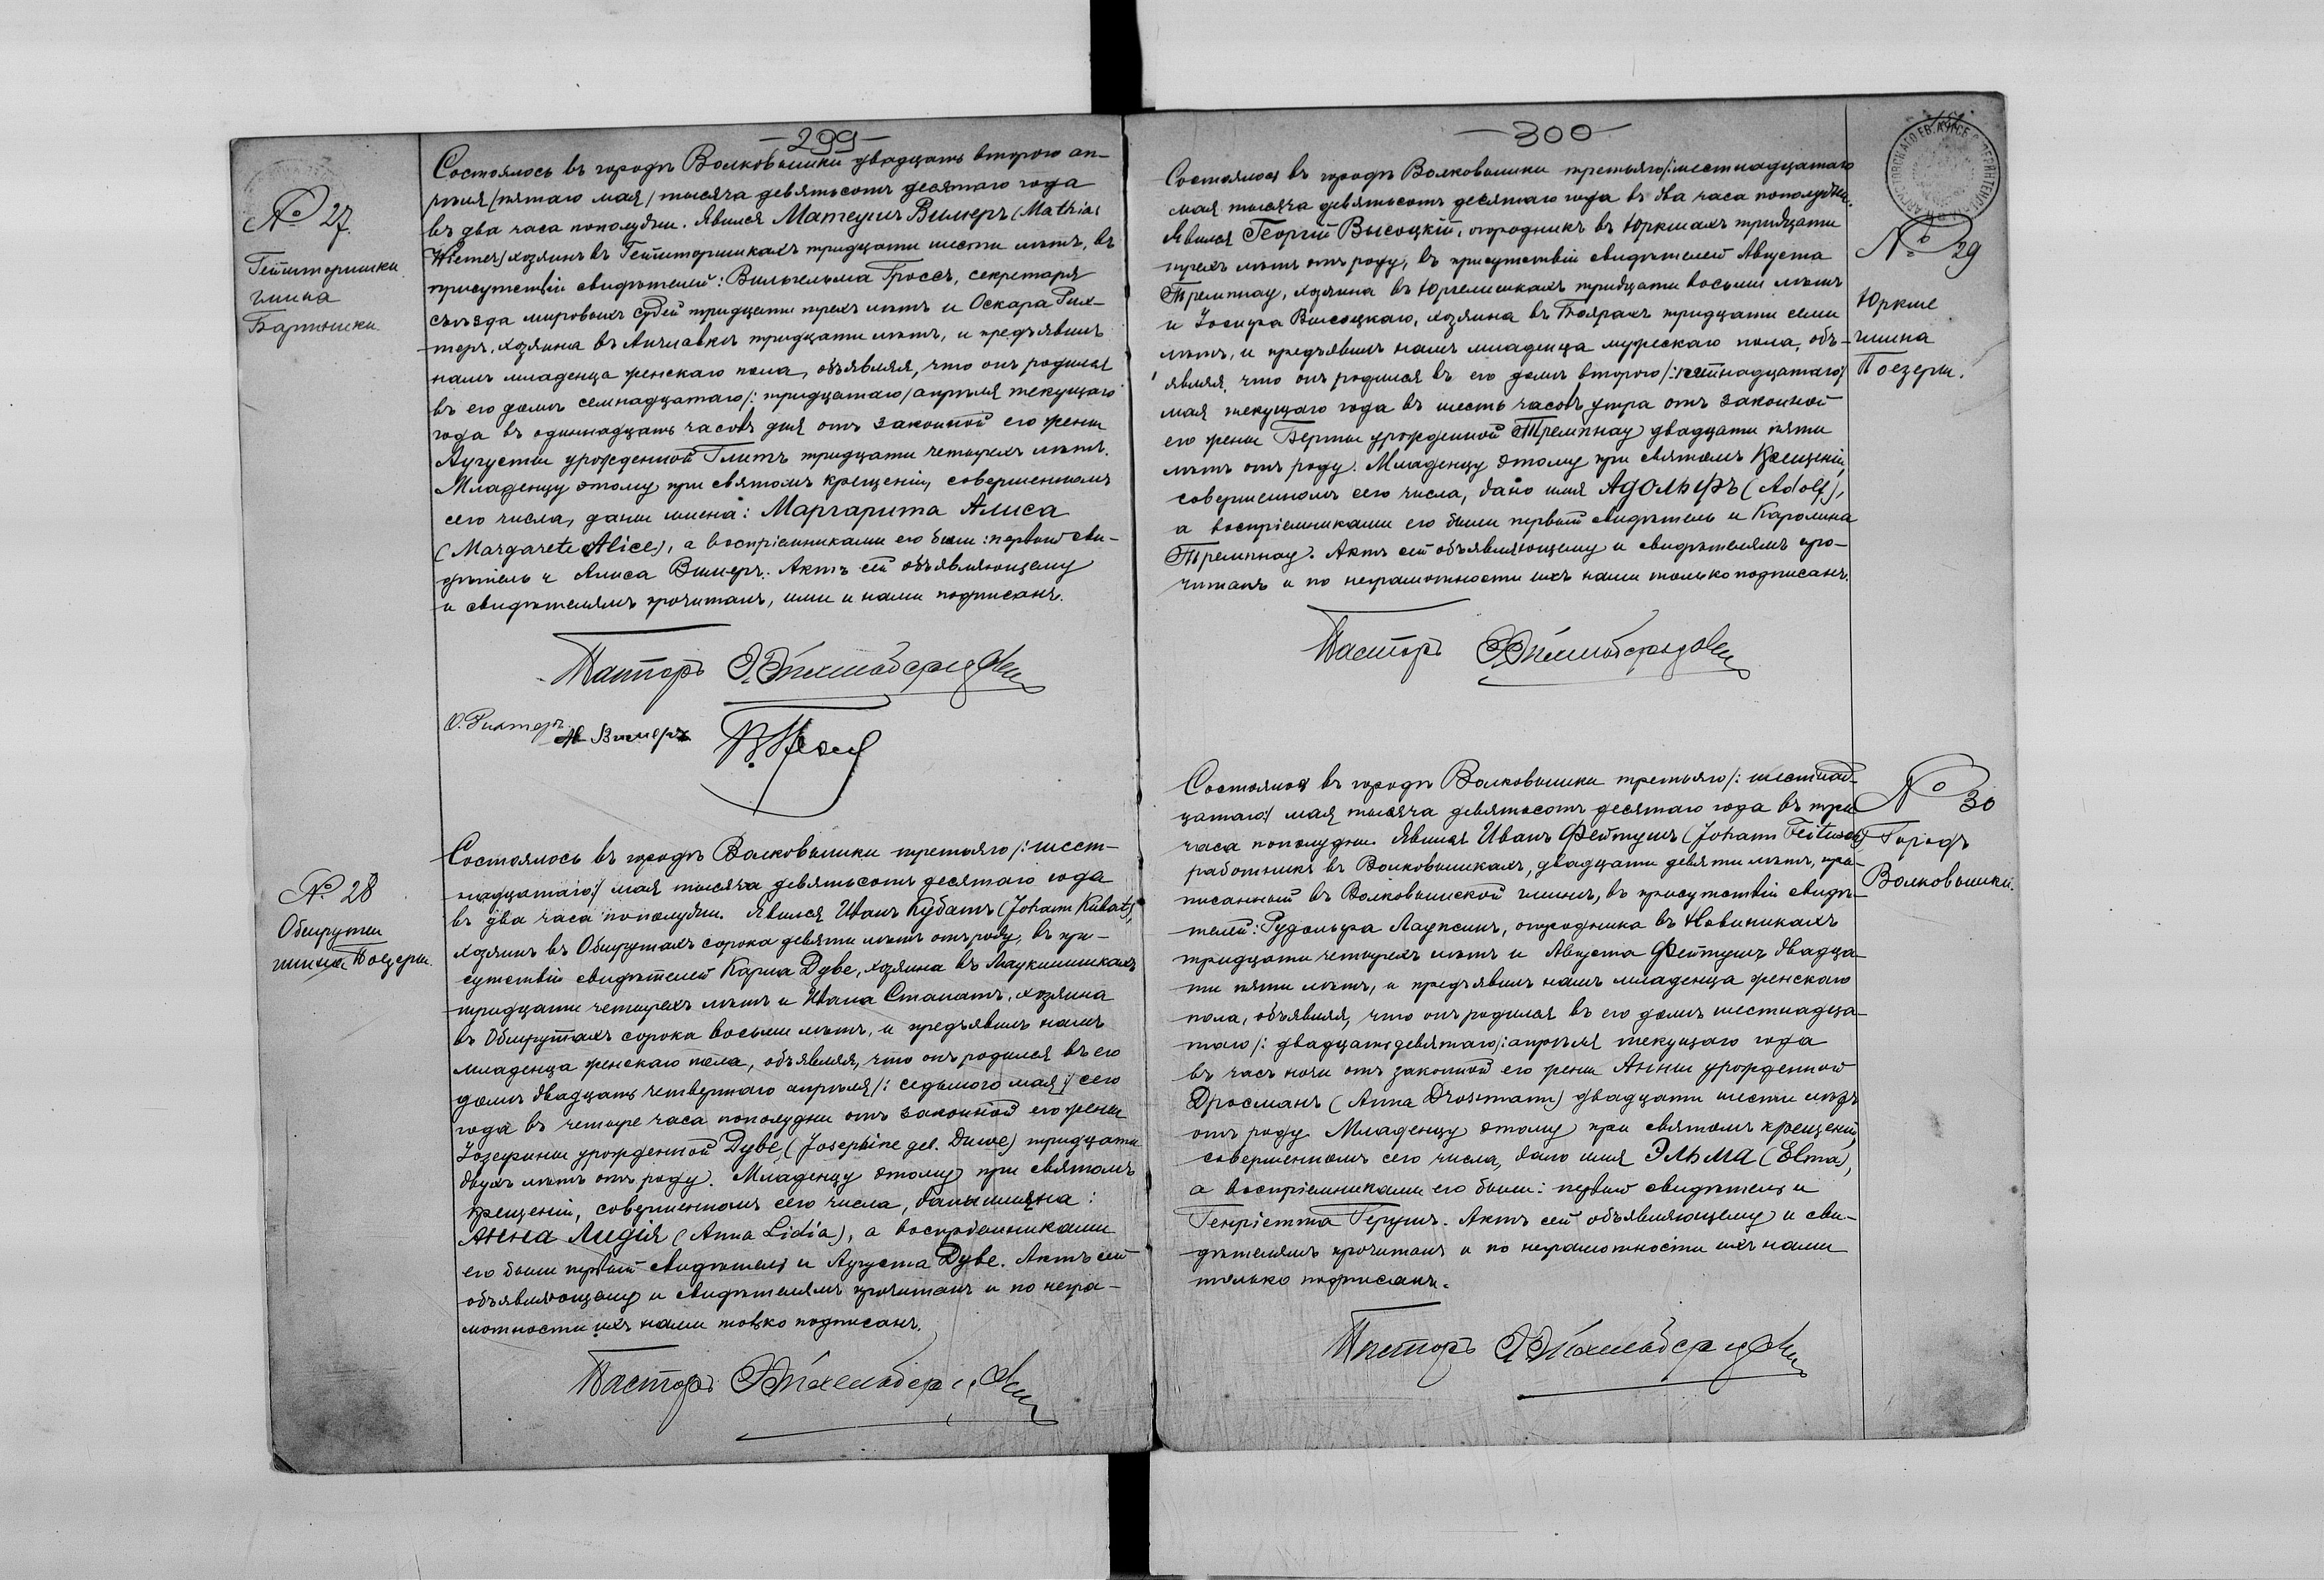 -299-
№ 27.
Гейшторишки
гмина
Бартники
Состоялось въ городѣ Волковышки двадцать второго ап-
рѣля /пятаго мая/ тысяча девятьсотъ десятаго года
въ два часа пополудни. Явился Матеушъ Вимеръ (Mathias
Wiemer) хозяинъ въ Гейшторишкахъ тридцати шести лѣтъ, въ
присутствіи свидѣтелей: Вильгельма Гроссъ, секретаря
съѣзда мировыхъ судей тридцати трехъ лѣтъ и Оскара Рих-
теръ, хозяина въ тридцати лѣтъ, и предъявилъ
намъ младенца женскаго пола, объявляя, что онъ родился
въ его домѣ семнадцатаго /: тридцатаго / апрѣля текущаго
года въ одиннадцать часовъ дня отъ законной его жены
Аугусты урожденной Глитъ тридцати четырехъ лѣтъ.
Младенцу этому при святомъ крещеніи, совершенномъ
сего числа, даны имена: Маргарита Алиса
(Margarete Alice), а воспріемниками его были: первый сви-
дѣтель и Алиса Вимеръ. Актъ сей объявляющему
и свидѣтелямъ прочитанъ, ими и нами подписанъ.
Пасторъ
О. Рихтеръ М Вимеръ
№ 28
Обшруты
гмина Поезеры.
Состоялось въ городѣ Волковышки третьяго /: шест-
надцатаго :/ мая тысяча девятьсотъ десятаго года
въ два часа пополудни. Явился Иванъ Кубатъ (Johann Kubat),
хозяинъ въ Обшрутахъ сорока девяти лѣтъ отъ роду, въ при-
сутствіи свидѣтелей Карла Дуве, хозяина въ Лаукинишкахъ
тридцати четырехъ лѣтъ и Ивана Станатъ, хозяина
въ Обшрутахъ сорока восьми лѣтъ, и предъявилъ намъ
младенца женскаго пола, объявляя, что онъ родился въ его
домѣ двадцать четвертаго апрѣля /: седьмого мая :/ сего
года въ четыре часа пополудни отъ законной его жены
Іозефины урожденной Дуве, (Josephine geb. Duwe) тридцати
двухъ лѣтъ отъ роду. Младенцу этому при святомъ
крещеніи, совершенномъ сего числа, даны имена:
Анна Лидія (Anna Lidia), а воспріемниками
его были первый свидѣтель и Аугуста Дуве. Актъ сей
объявляющему и свидѣтелямъ прочитанъ и по негра-
мотности ихъ нами только подписанъ.
Пасторъ
-300-
№ 29
Юркше
гмина
Поезеры.
Состоялось въ городѣ Волковышки третьяго /: шестнадцатаго
мая тысяча девятьсотъ десятаго года въ два часа пополудни.
Явился Георгій Высоцкій, огородникъ въ Юркшахъ тридцати
трехъ лѣтъ отъ роду, въ присутствіи свидѣтелей Августа
Тремпнау, хозяина въ Юргелишкахъ тридцати восьми лѣтъ
и Іосифа Высоцкаго, хозяина въ Боярахъ тридцати семи
лѣтъ, и предъявилъ намъ младенца мужескаго пола, объ-
являя, что онъ родился въ его домѣ второго /: пятнадцатаго /
мая текущаго года въ шесть часовъ утра отъ законной
его жены Берты урожденной Тремпнау двадцати пяти
лѣтъ отъ роду. Младенцу этому при святомъ Крещеніи,
совершенномъ сего числа, дано имя Адольфъ (Adolf),
а воспріемниками его были первый свидѣтель и Каролина
Тремпнау. Актъ сей объявляющему и свидѣтелямъ про-
читанъ и по неграмотности ихъ нами только подписанъ.
Пасторъ
№ 30
Городъ
Волковышки.
Состоялось въ городѣ Волковышки третьяго /: шестнад-
цатаго :/ мая тысяча девятьсотъ десятаго года въ три
часа пополудни. Явился Иванъ Фейтушъ (Johann Feitusch)
работникъ въ Волковышкахъ, двадцати девяти лѣтъ, при-
писанный въ Волковышской гминѣ, въ присутствіи свидѣ-
телей: Рудольфа огородника въ Новиникахъ
тридцати четырехъ лѣтъ и Августа Фейтушъ двадца-
ти пяти лѣтъ, и предъявилъ намъ младенца женскаго
пола, объявляя, что онъ родился въ его домѣ шестнадца-
таго /: двадцать девятаго :/ апрѣля текущаго года
въ часъ ночи отъ законной его жены Анны урожденной
Дросманъ (Anna Drosmann) двадцати шести лѣтъ
отъ роду. Младенцу этому при святомъ крещеніи,
совершенномъ сего числа, дано имя Эльма (Elma),
а воспріемниками его были: первый свидѣтель и
Генріетта Герушъ. Актъ сей объявляющему и сви-
дѣтелямъ прочитанъ и по неграмотности ихъ нами
только подписанъ.
Пасторъ